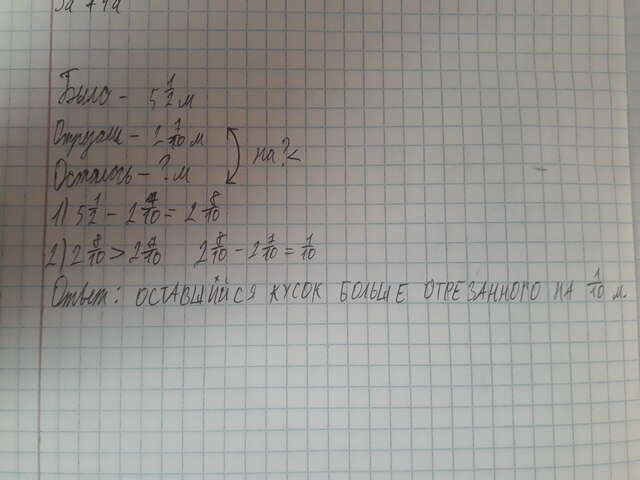 Было - 5 1/2 м
Отрезали - 2 7/10 м
на ? <
Осталось - ? м
1) 5 1/2 - 2 7/10 = 2 8/10
2) 2 8/10 > 2 7/10 2 8/10 - 2 7/10 = 1/10
Ответ: ОСТАВШИЙСЯ КУСОК БОЛЬШЕ ОТРЕЗАННОГО НА 1/10 м.